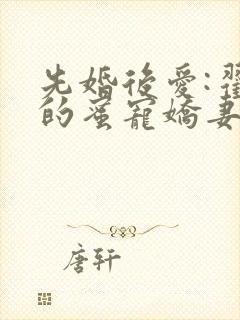 先婚後愛:
的蜜寵嬌妻
唐轩